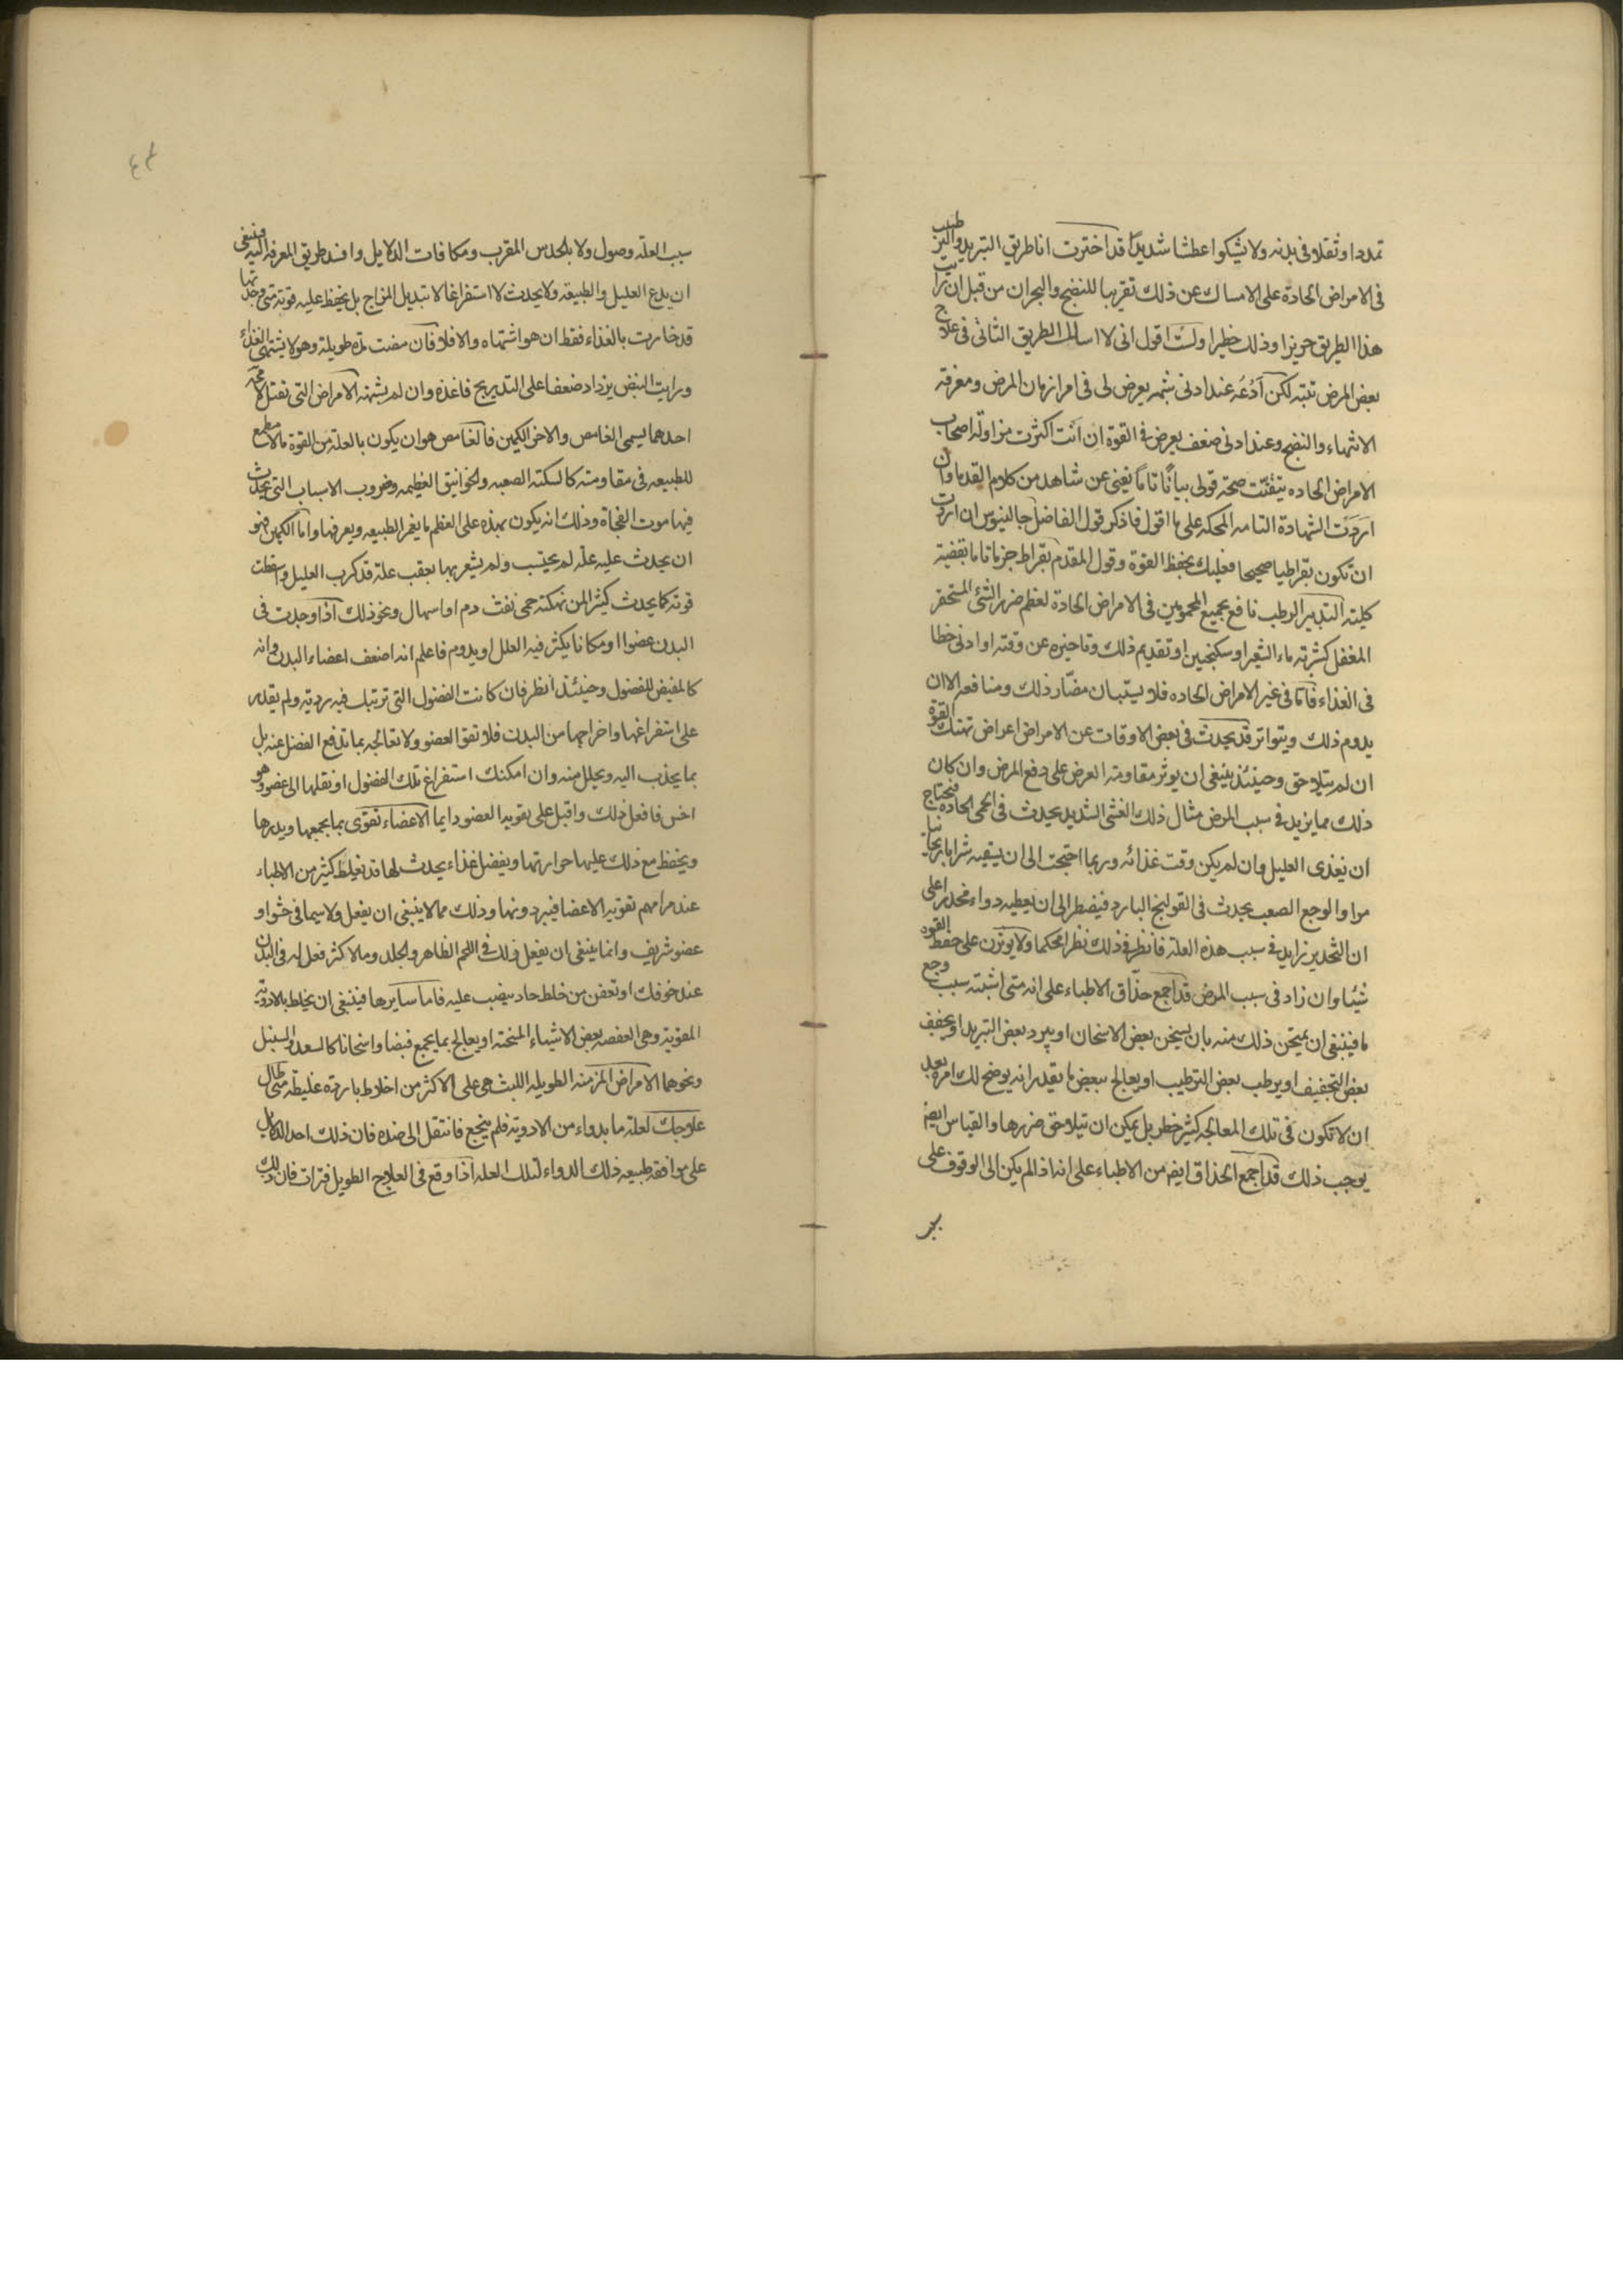 تمددا وثقلا فى بدنه ولا يشكوا عطشا شديدا قد اخترت انا طريق التبريد والترطيب
فى الامراض الحادة على الامساك عن ذلك تقريبا للنضج والبحران من قبل ان رايت
هذا الطريق حريزا وذلك خطيرا ولست اقول انى لا اسالك الطريق الثانى فى علاج
بعض المرض تبته لكن ادعه عند ادنى شبهه يعرض لى فى امر ازمان المرض ومعرفة
الانتهاء والنضج وعند ادنى ضعف يعرض فى القوة ان انت اكثرت مزاولة اصحاب
الامراض الحاده تيقنت صحة قولى بيانا تاما يغنى عن شاهد من كلام القدما وان
اردت الشهادة التامه المحكمه على ما اقول فاذكر قول الفاضل جالينوس ان اردت
ان تكون بقراطيا صحيحا فعليك بحفظ القوة وقول المقدم بقراط جزما تاما بقضية
كلية التدبير الرطب نافع بجميع المحمومين فى الامراض الحادة لعظم ضرر الشئ المستحقر
المغفل كشربة ماء الشعير او سكنجبين او تقديم ذلك وتاخيره عن وقته او ادنى خطا
فى الغذاء فاما فى غير الامراض الحاده فلا يستبان مضار ذلك ومنافعه الا ان
يدوم ذلك ويتواتر قد يحدث فى بعض الاوقات عن الامراض اعراض تهتك القوة
ان لم يتلاحق وحينئذ ينبغى ان يوثر مقاومة العرض على دفع المرض وان كان
ذلك مما يزيد فى سبب المرض مثال ذلك الغشى الشديد يحدث فى الحمى الحادة فيحتاج
ان يغذى العليل وان لم يكن وقت غذائه وربما احتجت الى ان يسقيه شرابا ريحانيا
مرا والوجع الصعب يحدث فى القولنج البارد فيضطر الى ان يعطيه دواء مخدرا على
ان التخدير زايد فى سبب هذه العلة فانظر فى ذلك نظرا محكما ولا يوثرن على حفظ القوه
شيئا وان زاد فى سبب المرض قد اجمع حذاق الاطباء على انه متى اشبته سبب وجع
ما فينبغى ان يمتحن ذلك منه بان يسخن بعض الاسخان او يبرد بعض التبريد او يجفف
بعض التجفيف او يرطب بعض الترطيب او يعالج ببعض ما يقدر انه يوضح لك امره بعد
ان لا تكون فى تلك المعالجه كثير خطر بل يمكن ان يتلاحق ضررها والقياس ايضا
يوجب ذلك قد اجمع الحذاق ايضا من الاطباء على انه اذا لم يكن الى الوقوف على
سبب العلة وصول ولا بالحدس المقرب ومكافات الدلايل وافسد طريق المعرفة اليه فينبغى
ان يدع العليل والطبيعة ولا يحدث لا استفراغا لا تبديل المزاج بل يحفظ عليه قوته متى وجدتها
قد خارت بالغذاء فقط ان هو اشتهاه والا فلا فان مضت مدة طويلة وهو لا يشتهى الغذاء
ورايت النبض يزداد ضعفا على التدريج فاغذه وان لم يشتهه الامراض التى تقتل
احدهما يسمى الغامص والاخر الكمين فالغامص هو ان يكون بالعلة من القوة ما لا مطمع
للطبيعه فى مقاومته كالسكتة الصعبه والخوانيق العظيمه وضروب الاسباب التى يحدث
فيها موت الفجاة وذلك انه يكون بهذه على العظم ما يغمر الطبيعه ويعرفها واما الكمين فهو
ان يحدث عليه علة لم يحتسب ولم يشعر بها بعقب علة قد كرب العليل واسقطت
قوته كما يحدث كثيرا لمن نهكته حمى نفث دم او اسهال ونحو ذلك اذا وجدت فى
البدن عضوا او مكانا يكثر فيه العلل او يدوم فاعلم انه اضعف اعضاء البدن وانه
كالمفيض للفضول وحينئذ انظر فان كانت الفضول التى ترتبك فيه ردية ولم يقدر
على استفراغها واخراجها من البدن فلا تقو العضو ولا تعالجه بما تدفع الفضل عنه بل
بما يجذب اليه ويحلل منه وان امكنك استفراغ تلك الفضول او نقلها الى عضو هو
اخس فافعل ذلك واقبل على تقويه العضو دايما الاعضاء تقوى بما يجمعها ويدرها
ويحفظ مع ذلك عليها حرارتها ويفضل غذاء يحدث لها قد تغلط كثير من الاطباء
عند مرامهم تقوية الاعضا فيبردونها وذلك مما لا ينبغى ان يفعل ولا سيما فى حشو او
عضو شريف وانما ينبغى ان يفعل ذلك فى اللحم الظاهر والجلد وما لا كثر فعل له فى البدن
عند خوفك او تعفن من خلط حاد ينصب عليه فاما سايرها فينبغى ان يخلط بالادوية
المقوية وهى العفصه بعض الاشياء المسخنة او يعالج بما يجمع قبضا واسخانا كالسعد والسنبل
ونحوهما الامراض المزمنه الطويله اللبث هى على الاكثر من اخلاط باردة غليظة متى طال
علاجك لعلة ما بدواء من الادوية فلم ينجع فانتقل الى ضده فان ذلك احد الدلايل
على موافقه طبيعه ذلك الدواء لتلك العله اذا وقع فى العلاج الطويل فترات فان ذلك